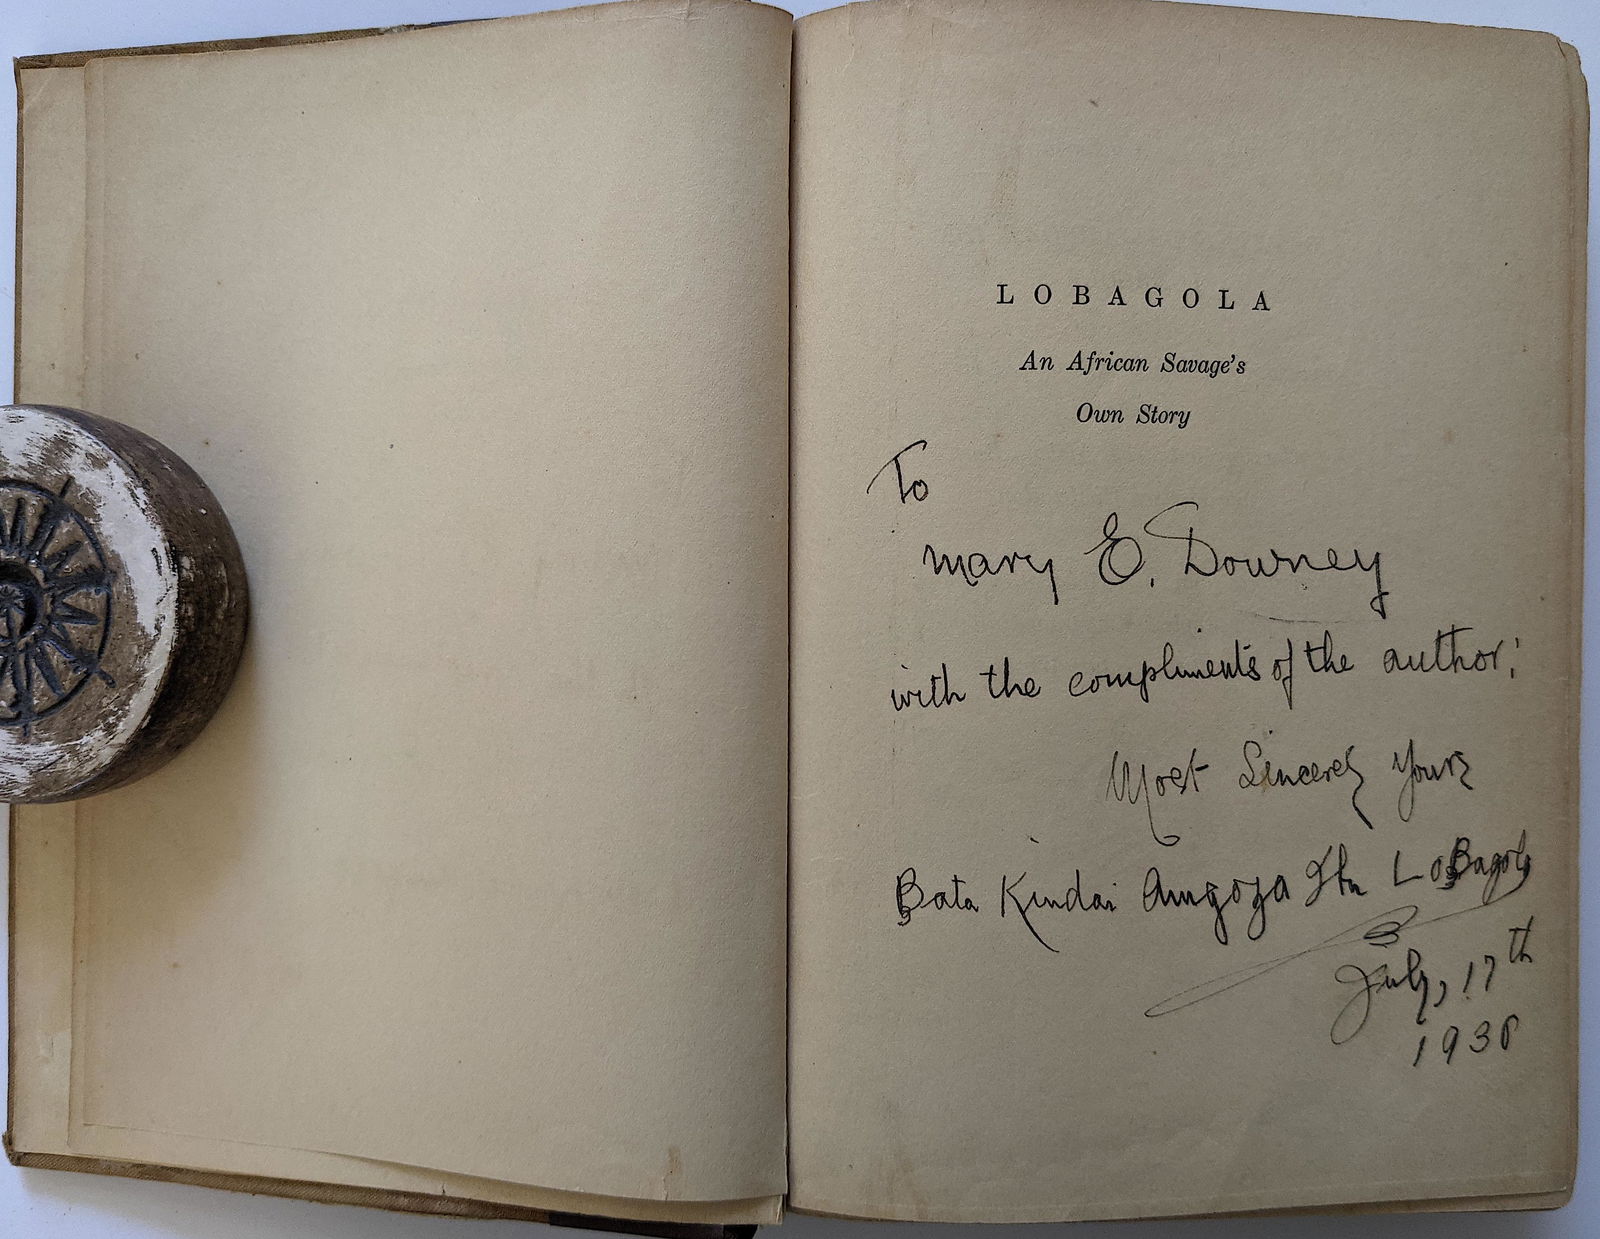 LOBAGOLA
An African Savage's
Own Story
To
Mary E. Downey
with the compliments of the author;
Most Sincerely Yours
Bata Kindai Amgoza Ibn LoBagola
July, 17th
1930